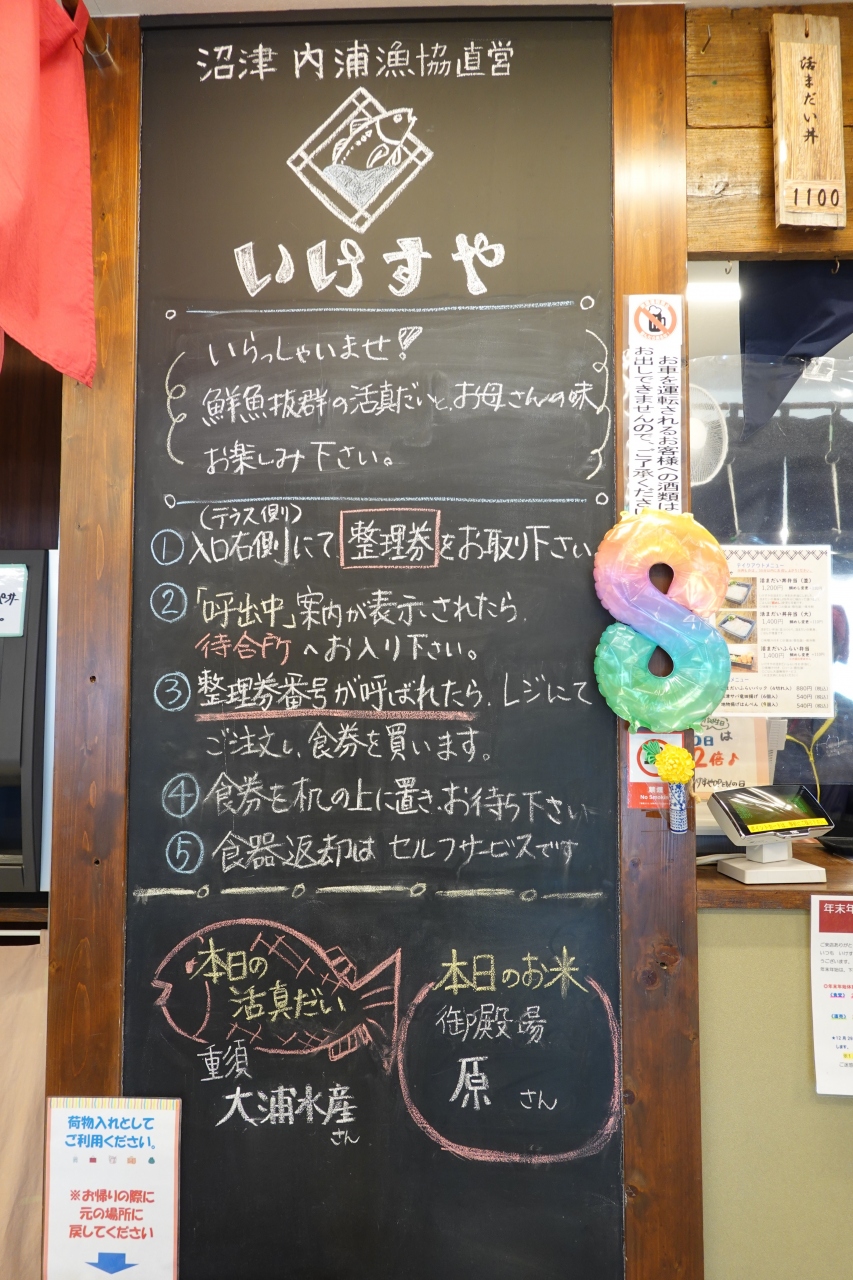 沼津 内浦漁協直営
いけすや
いらっしゃいませ!
鮮魚抜群の活真だいと、お母さんの味
お楽しみ下さい。
(テラス側)
① 入口右側にて 整理券 をお取り下さい
② 「呼出中」案内が表示されたら、
待合所へお入り下さい。
③ 整理券番号が呼ばれたら、レジにて
ご注文し、食券を買います。
④ 食券を机の上に置き、お待ち下さい
⑤ 食器返却は セルフサービスです
本日の
活真だい
重須
大浦水産
さん
本日のお米
御殿場
原 さん
活まだい丼
1100
お車を運転されるお客様への酒類は
お出しできませんので、ご了承ください
テイクアウトメニュー
活まだい弁当(大)
1,400円
活まだいふらい弁当
1,400円
880円(税込)
540円(税込)
540円(税込)
2倍♪
No Smoking
荷物入れとして
ご利用ください。
※お帰りの際に
元の場所に
戻してください
年末年